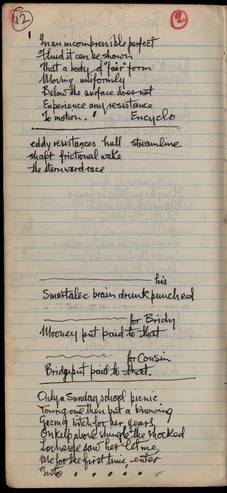 12
2
In an incompressible perfect
Fluid it can be shown
That a body of "fair" form
Moving uniformly
Below the surface does not
Experience any resistance
To motion." Encyclo
eddy resistances hull streamline
shaft frictional wake
the sternward race
his
Smartalec brain drunk punched
for Bridy
Mooney put paid to that
for Cousin
Bridy put paid to that.
Only a Sunday school picnic
Young one then put a brewing
bitch for her years
On kelp above shingle the shocked
Lochside saw her let me
Me for the first time enter